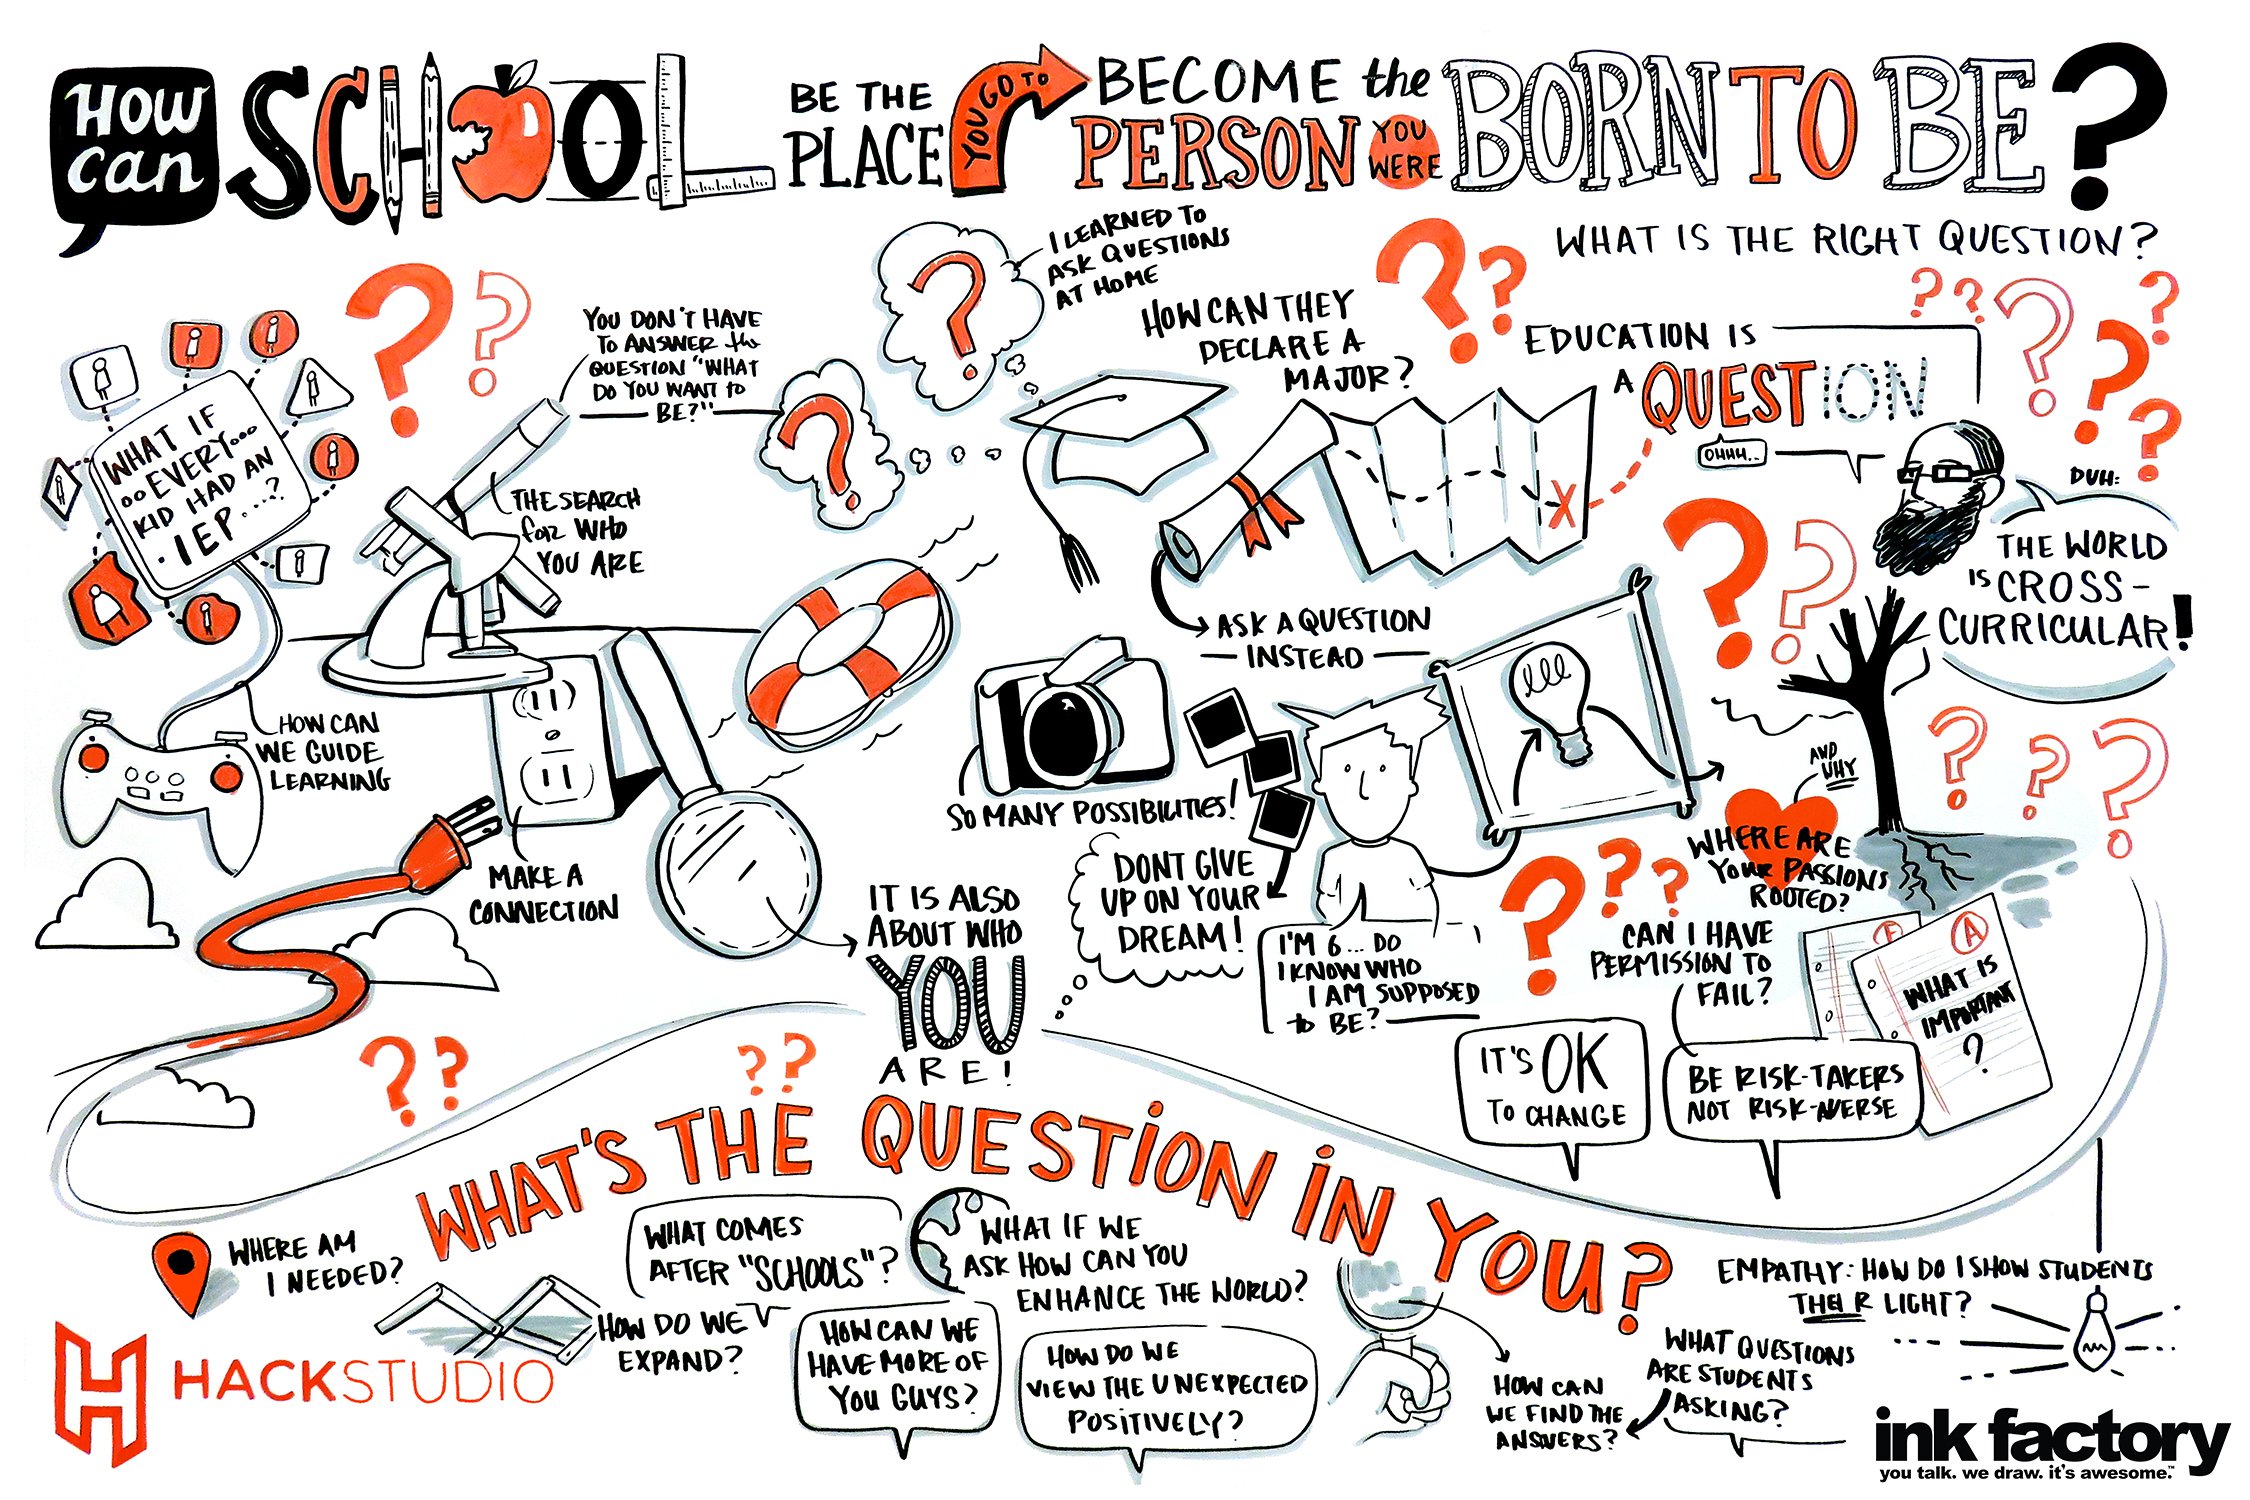 HOW
can
SCHOOL
BE THE
PLACE
YOU GO TO
BECOME the
PERSON
YOU
WERE
BORN TO BE?
WHAT IS THE RIGHT QUESTION?
I LEARNED TO
ASK QUESTIONS
AT HOME
HOW CAN THEY
DECLARE A
MAJOR?
EDUCATION IS
A QUESTION
OHHH..
DUH:
THE WORLD
IS CROSS-
CURRICULAR!
YOU DON'T HAVE
TO ANSWER the
QUESTION "WHAT
DO YOU WANT to
BE?"
WHAT IF
..EVERY...
KID HAD AN
.IEP....?
THE SEARCH
for WHO
YOU ARE
ASK A QUESTION
INSTEAD
HOW CAN
WE GUIDE
LEARNING
MAKE A
CONNECTION
SO MANY POSSIBILITIES!
DONT GIVE
UP ON YOUR
DREAM!
IT IS ALSO
ABOUT WHO
YOU
ARE!
I'M 6... DO
I KNOW WHO
I AM SUPPOSED
to BE?
AND
WHY
WHERE ARE
YOUR PASSIONS
ROOTED?
CAN I HAVE
PERMISSION TO
FAIL?
F
A
WHAT IS
IMPORTANT
?
IT'S OK
TO CHANGE
BE RISK-TAKERS
NOT RISK-AVERSE
WHAT'S THE QUESTION IN YOU?
WHERE AM
I NEEDED?
WHAT COMES
AFTER "SCHOOLS"?
HOW DO WE
EXPAND?
WHAT IF WE
ASK HOW CAN YOU
ENHANCE THE WORLD?
HOW CAN WE
HAVE MORE OF
YOU GUYS?
HOW DO WE
VIEW THE UNEXPECTED
POSITIVELY?
HOW CAN
WE FIND THE
ANSWERS?
WHAT QUESTIONS
ARE STUDENTS
ASKING?
EMPATHY: HOW DO I SHOW STUDENTS
THEIR LIGHT?
H HACKSTUDIO
ink factory
you talk. we draw. it's awesome.™